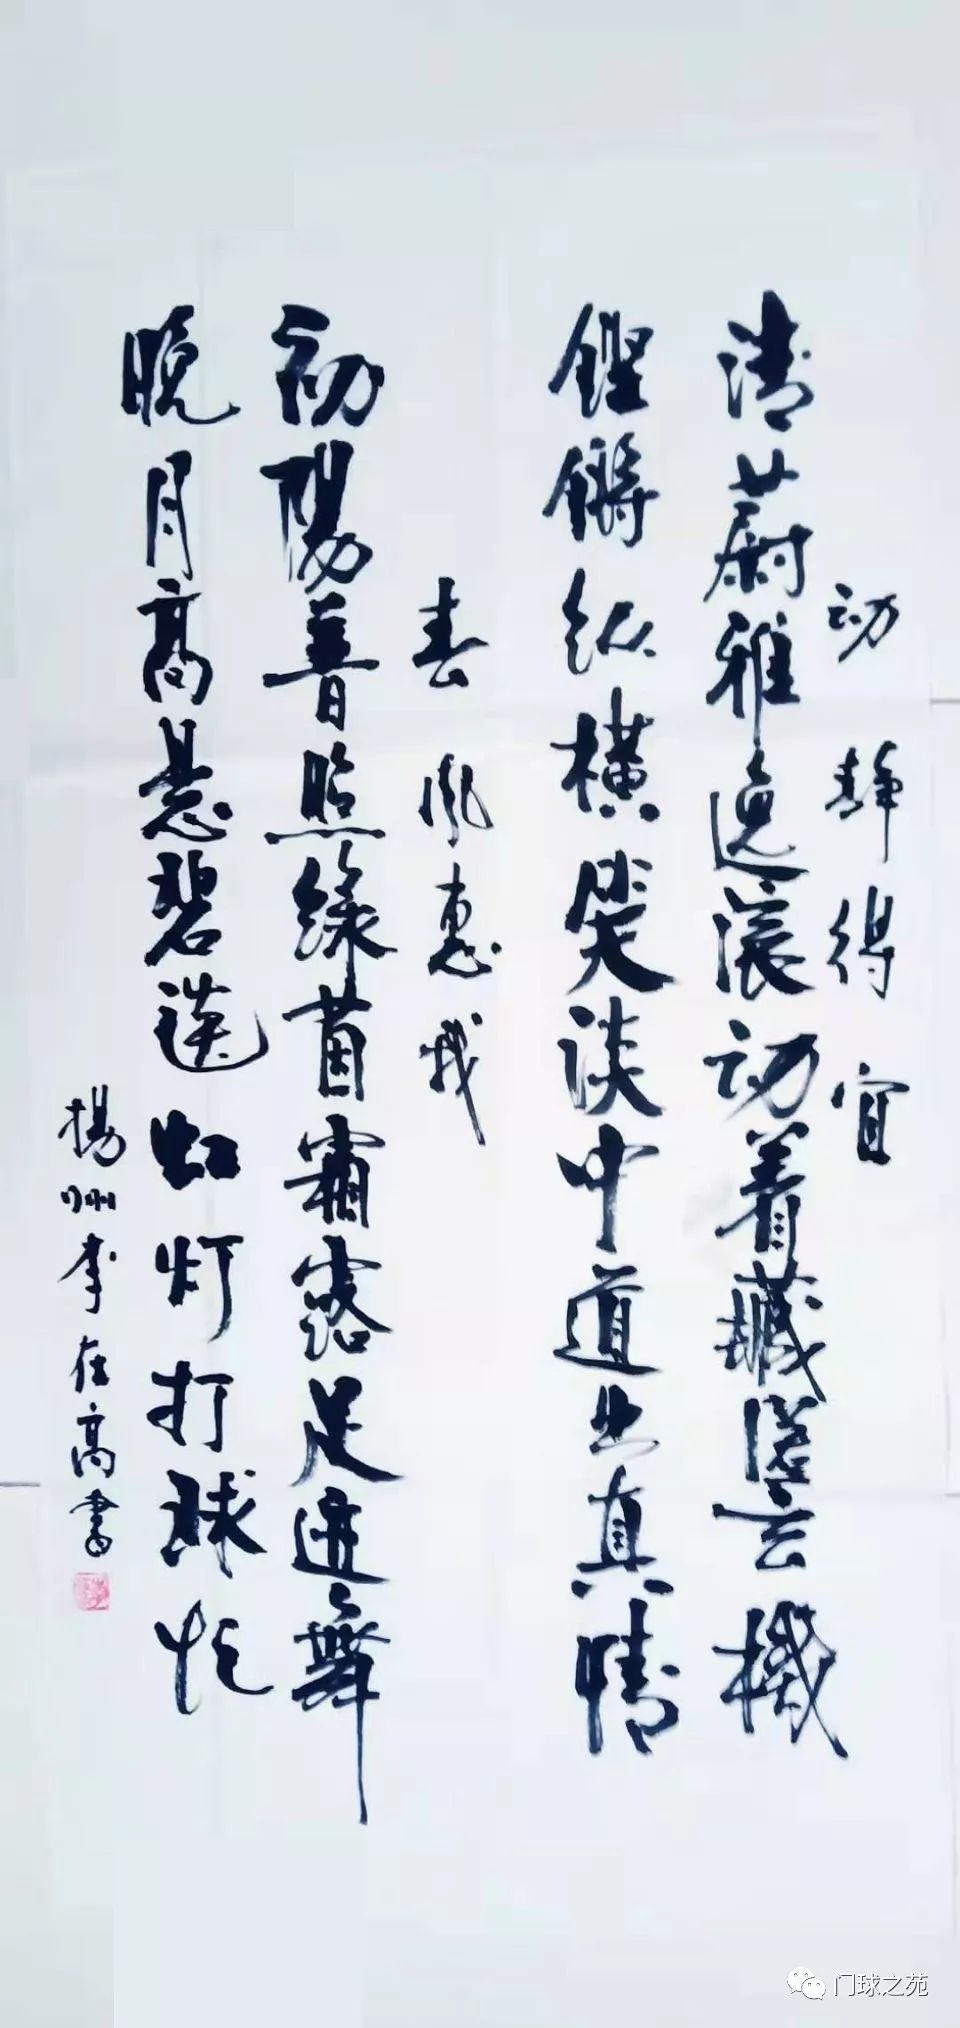 动静得宜
清蔚雅逸滚动着藏云機
铿锵纵横笑谈中道出真情
春风惠我
初陽普照緑茵霜露足迹舞
晚月高悬碧漢虹灯打球忙
揚州李在高書
门球之苑